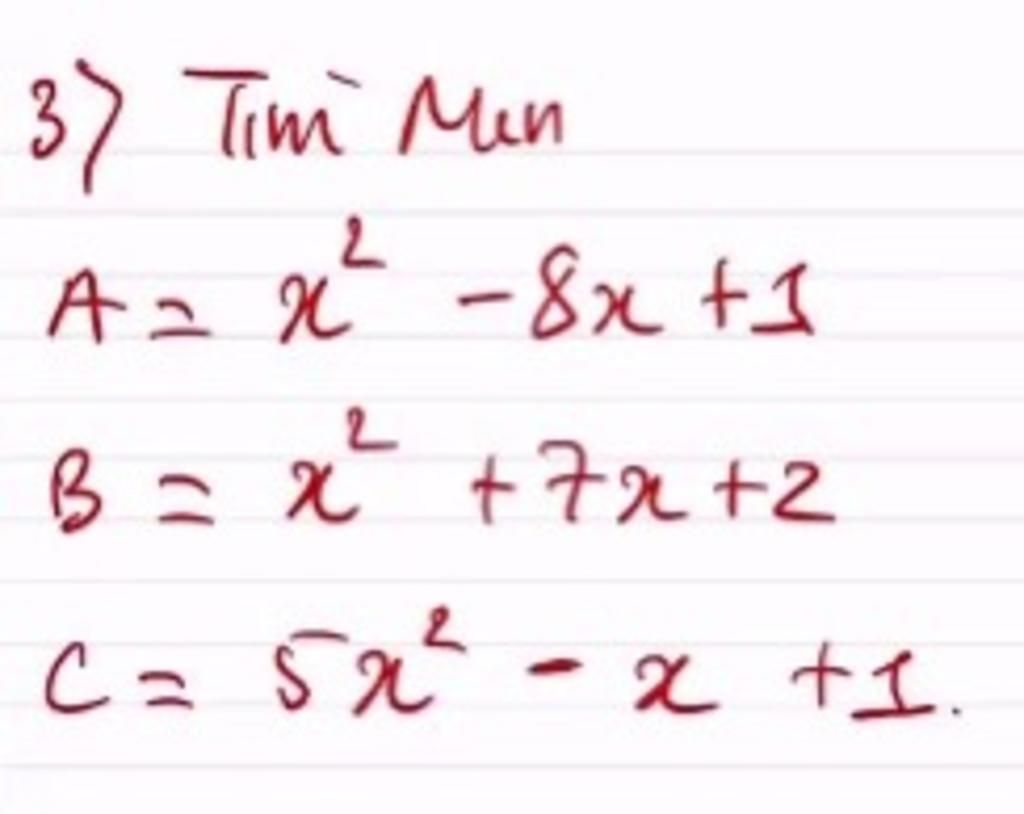 3) Tìm Min
A = x² - 8x + 1
B = x² + 7x + 2
C = 5x² - x + 1.